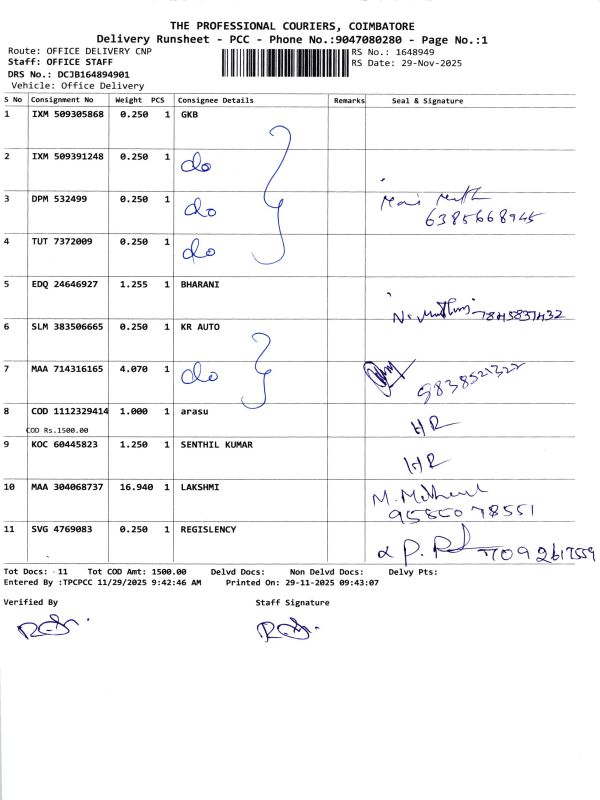 THE PROFESSIONAL COURIERS, COIMBATORE
Delivery Runsheet - PCC - Phone No.:9047080280 - Page No.:1
Route: OFFICE DELIVERY CNP RS No.: 1648949
Staff: OFFICE STAFF RS Date: 29-Nov-2025
DRS No.: DCJB164894901
Vehicle: Office Delivery
S No Consignment No Weight PCS Consignee Details Remarks Seal & Signature
1 IXM 509305868 0.250 1 GKB
2 IXM 509391248 0.250 1 do
3 DPM 532499 0.250 1 do
6385668945
4 TUT 7372009 0.250 1 do
5 EDQ 24646927 1.255 1 BHARANI
6 SLM 383506665 0.250 1 KR AUTO
7 MAA 714316165 4.070 1 do
9838521322
8 COD 1112329414 1.000 1 arasu HR
COD Rs.1500.00
9 KOC 60445823 1.250 1 SENTHIL KUMAR HR
10 MAA 304068737 16.940 1 LAKSHMI
9585078551
11 SVG 4769083 0.250 1 REGISLENCY
7092617559
Tot Docs: 11 Tot COD Amt: 1500.00 Delvd Docs: Non Delvd Docs: Delvy Pts:
Entered By :TPCPCC 11/29/2025 9:42:46 AM Printed On: 29-11-2025 09:43:07
Verified By Staff Signature